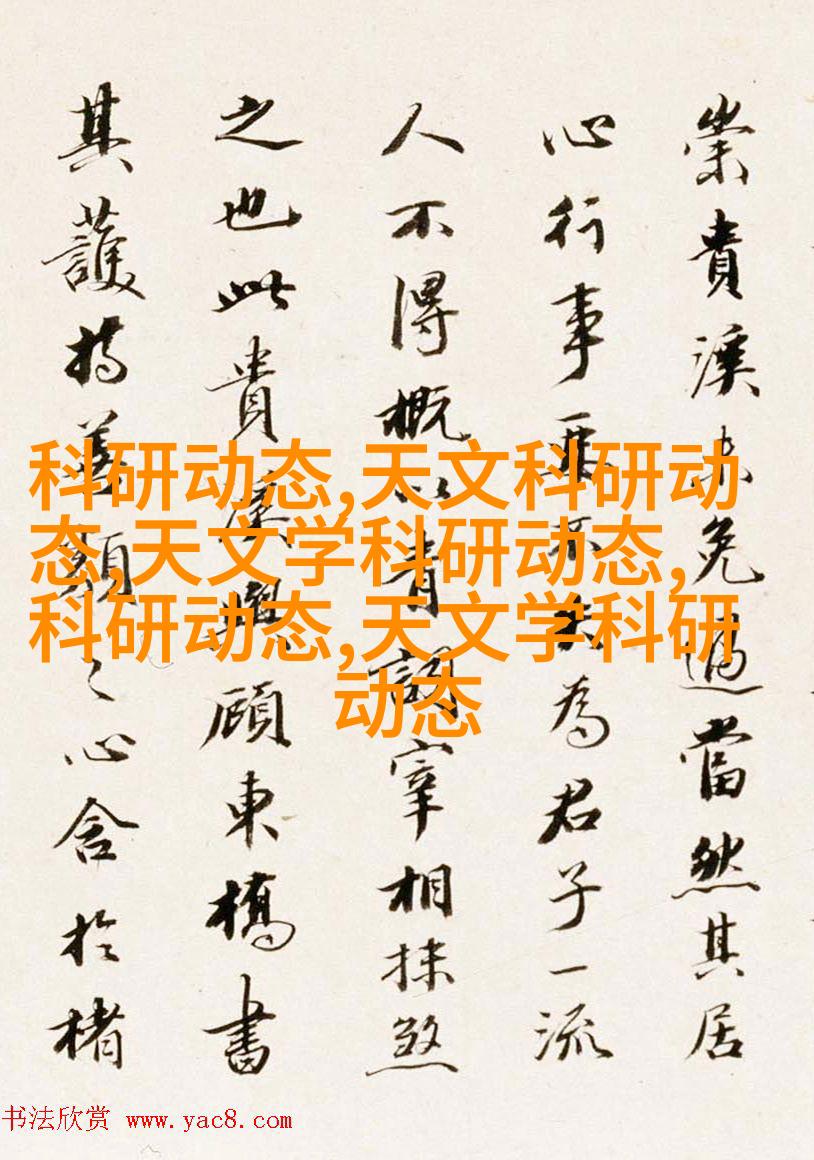 崇貴溪未免過當然其居
心行事要不失為君子一流
人不得概以青詞宰相抹煞
之也此貴溪與顧東橋書
其護持善類之心含於楮
科研动态,天文科研动
态,天文学科研动态,
科研动态,天文学科研
动态
书法欣赏 www.yac8.com